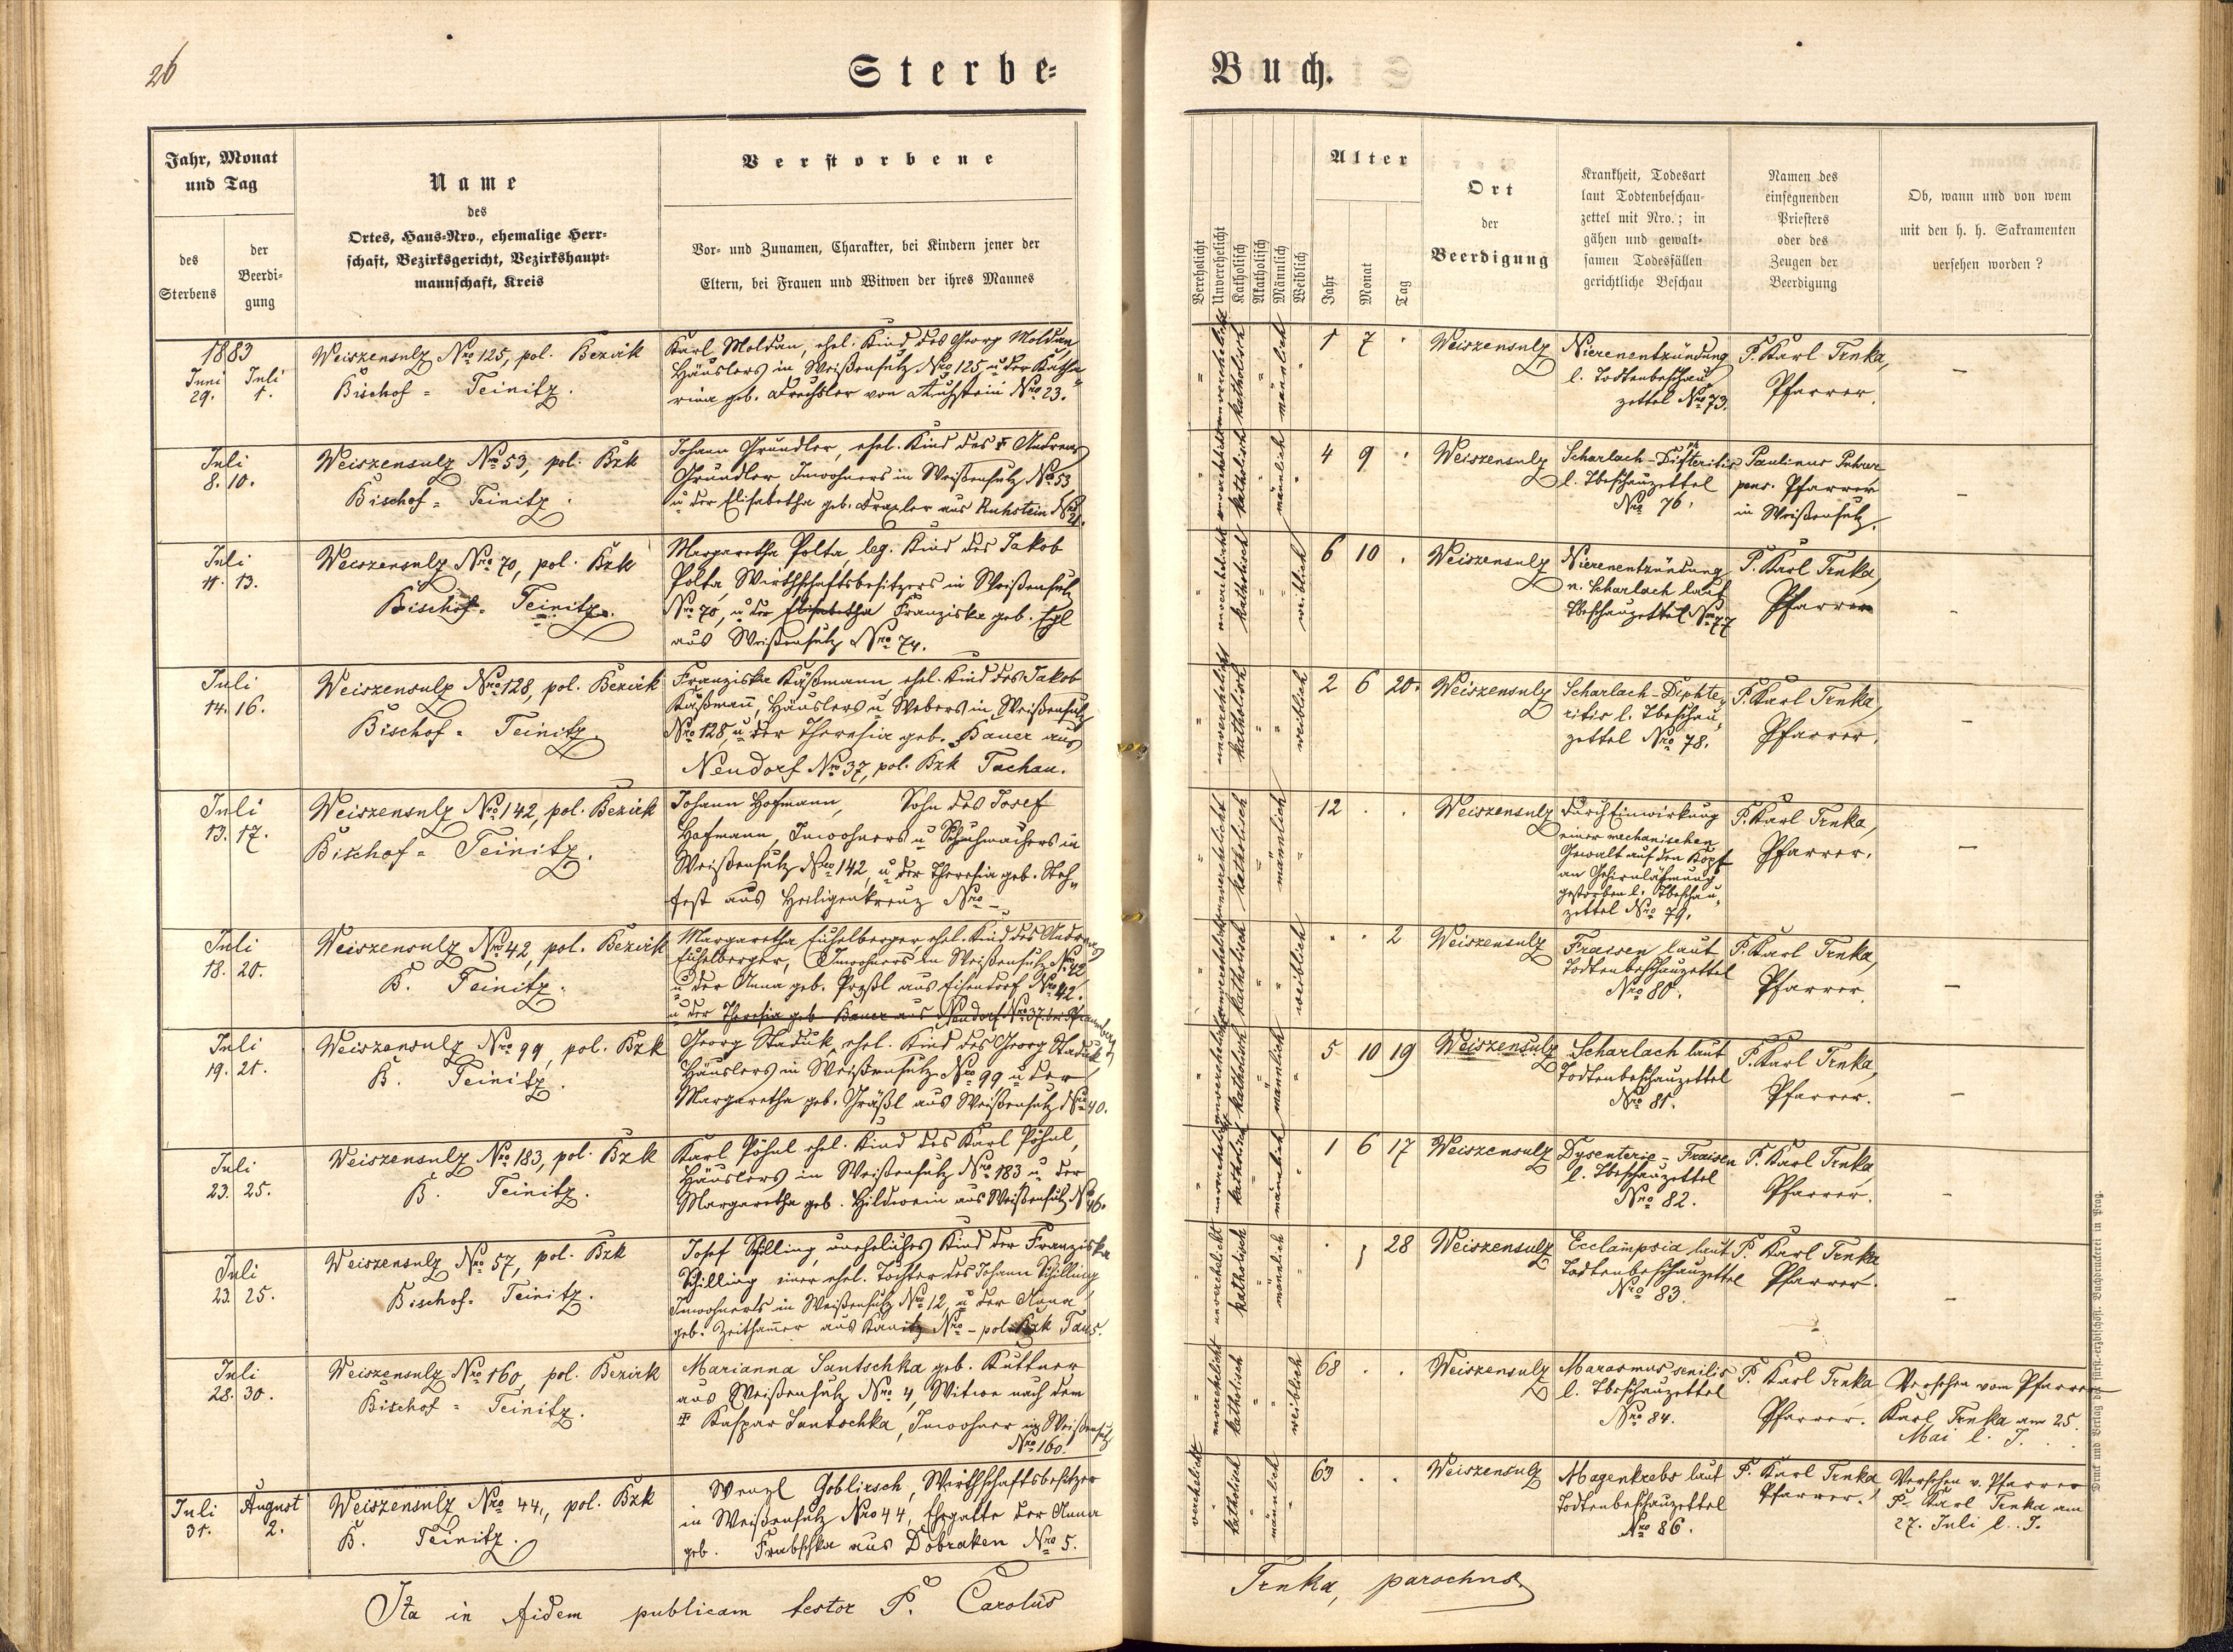 26
Sterbe-
Buch.
Jahr, Monat
und Tag
des
Sterbens
der
Beerdi-
gung
Name
des
Ortes, Haus-Nro., ehemalige Herr-
schaft, Bezirksgericht, Bezirkshaupt-
mannschaft, Kreis
Verstorbene
Vor- und Zunamen, Charakter, bei Kindern jener der
Eltern, bei Frauen und Witwen der ihres Mannes
Verehelicht
Unverehelicht
Katholisch
Akatholisch
Männlich
Weiblich
Alter
Jahr
Monat
Tag
Ort
der
Beerdigung
Krankheit, Todesart
laut Todtenbeschau-
zettel mit Nro.; in
gähen und gewalt-
samen Todesfällen
gerichtliche Beschau
Namen des
einsegnenden
Priesters
oder des
Zeugen der
Beerdigung
Ob, wann und von wem
mit den h. h. Sakramenten
versehen worden?
1883
Juni 29. Juli 1.
Weiszensulz Nro 125, pol. Bezirk
Bischof = Teinitz.
Karl Moldan, ehel. Kind des Georg Moldan,
Häuslers in Weißensulz Nro 125, u der Katha
rina geb. Drechsler von Nro 23.
" unverehelicht katholisch " männlich "
1 7 .
Weiszensulz
Nierenentzündung
l. Todtenbeschau
zettel Nro 73.
P. Karl Trnka,
Pfarrer.
—
Juli
8. 10.
Weiszensulz Nro 53, pol. Bzk
Bischof = Teinitz.
Johann Gründler, ehel. Kind des † Andreas
Gründler, Inwohners in Weißensulz Nro 53
u der Elisabetha geb. Draxler aus Ruhstein Nro 21.
" unverehelicht katholisch " männlich "
4 9 .
Weiszensulz
Scharlach-Difteritis
l. Tbeschauzettel
Nro 76.
Paulinus
pens. Pfarrer
in Weißensulz.
—
Juli
11. 13.
Weiszensulz Nro 70, pol. Bzk
Bischof = Teinitz.
Margaretha Polta, leg. Kind des Jakob
Polta, Wirthschaftsbesitzers in Weißensulz
Nro 70, u der Elisabetha Franziska geb. Egl
aus Weißensulz Nro 74.
" unverehelicht katholisch " " weiblich
6 10 .
Weiszensulz
Nierenentzündung
n. Scharlach laut
Tbeschauzettel Nro 77
P. Karl Trnka,
Pfarrer
—
Juli
14. 16.
Weiszensulz Nro 128, pol. Bezirk
Bischof = Teinitz.
Franziska Käßmann, ehel. Kind des Jakob
Käßmann, Häuslers u Webers in Weißensulz
Nro 128, u der Theresia geb. Bauer aus
Neudorf Nro 37, pol. Bzk Tachau.
" unverehelicht katholisch " " weiblich
2 6 20.
Weiszensulz
Scharlach-Diphte
ritis l. Tbeschau
zettel Nro 78.
P. Karl Trnka,
Pfarrer.
—
Juli
13. 17.
Weiszensulz Nro 142, pol. Bezirk
Bischof = Teinitz.
Johann Hofmann, Sohn des Josef
Hofmann, Inwohners u Schuhmachers in
Weißensulz Nro 142, u der Theresia geb. Steh
fest aus Heiligenkreuz Nro —
" unverehelicht katholisch " männlich "
12 . .
Weiszensulz
Durch Einwirkung
einer mechanischen
Gewalt auf den Kopf
an Gehirnlähmung
gestorben l. Tbeschau
zettel Nro 79.
P. Karl Trnka,
Pfarrer.
—
Juli
18. 20.
Weiszensulz Nro 42, pol. Bezirk
B. Teinitz.
Margaretha Eichelberger, ehel. Kind des Andreas
Eichelberger, Inwohners in Weißensulz Nro 42
u der Anna geb. Preßl aus Eisendorf Nro 42.
u der Theresia geb. Bauer aus Neudorf Nro 37. bei Pfraumberg
" unverehelicht katholisch " " weiblich
. . 2
Weiszensulz
Fraisen laut
Todtenbeschauzettel
Nro 80.
P. Karl Trnka,
Pfarrer.
—
Juli
19. 21.
Weiszensulz Nro 99, pol. Bzk
B. Teinitz.
Georg Staduk, ehel. Kind des Georg Staduk,
Häuslers in Weißensulz Nro 99 u der
Margaretha geb. Gräßl aus Weißensulz Nro 40.
" unverehelicht katholisch " männlich "
5 10 19
Weiszensulz
Scharlach laut
Todtenbeschauzettel
Nro 81.
P. Karl Trnka,
Pfarrer.
—
Juli
23. 25.
Weiszensulz Nro 183, pol. Bzk
B. Teinitz.
Karl Pöhnl ehel. Kind des Karl Pöhnl,
Häuslers in Weißensulz Nro 183 u der
Margaretha geb. Hildwein aus Weißensulz Nro 46.
" unverehelicht katholisch " männlich "
1 6 17
Weiszensulz
Dysenterie - Fraisen
l. Tbeschauzettel
Nro 82.
P. Karl Trnka,
Pfarrer.
—
Juli
23. 25.
Weiszensulz Nro 57, pol. Bzk
Bischof = Teinitz.
Josef Schilling, uneheliches Kind der Franziska
Schilling einer ehel. Tochter des Johann Schilling
Inwohners in Weißensulz Nro 12, u der Anna
geb. Zeithamer aus Kanitz Nro - pol. Bzk Taus.
" unverehelicht katholisch " männlich "
. . 28
Weiszensulz
Ecclampsia laut
Todtenbeschauzettel
Nro 83.
P. Karl Trnka
Pfarrer.
—
Juli
28. 30.
Weiszensulz Nro 160, pol. Bezirk
Bischof = Teinitz.
Marianna Santschka geb. Kuttner
aus Weißensulz Nro 4, Witwe nach dem
† Kaspar Santschka, Inwohner in Weißensulz
Nro 160.
" unverehelicht katholisch " " weiblich
68 . .
Weiszensulz
Marasmus senilis
l. Tbeschauzettel
Nro 84.
P. Karl Trnka
Pfarrer.
Versehen vom Pfarrer
Karl Trnka am 25.
Mai l. J.
Juli 31. August 2.
Weiszensulz Nro 44, pol. Bzk
B. Teinitz.
Wenzl Goblirsch, Wirthschaftsbesitzer
in Weißensulz Nro 44, Ehegatte der Anna
geb. Frabschka aus Dobraken Nro 5.
verehelicht " katholisch " männlich "
63 . .
Weiszensulz
Magenkrebs laut
Todtenbeschauzettel
Nro 86.
P. Karl Trnka
Pfarrer.
Versehen v. Pfarrer
P. Karl Trnka am
27. Juli l. J.
Ita in fidem publicam testor P. Carolus
Trnka, parochus
Druck und Verlag der fürst-erzbischöfl. Buchdruckerei in Prag.